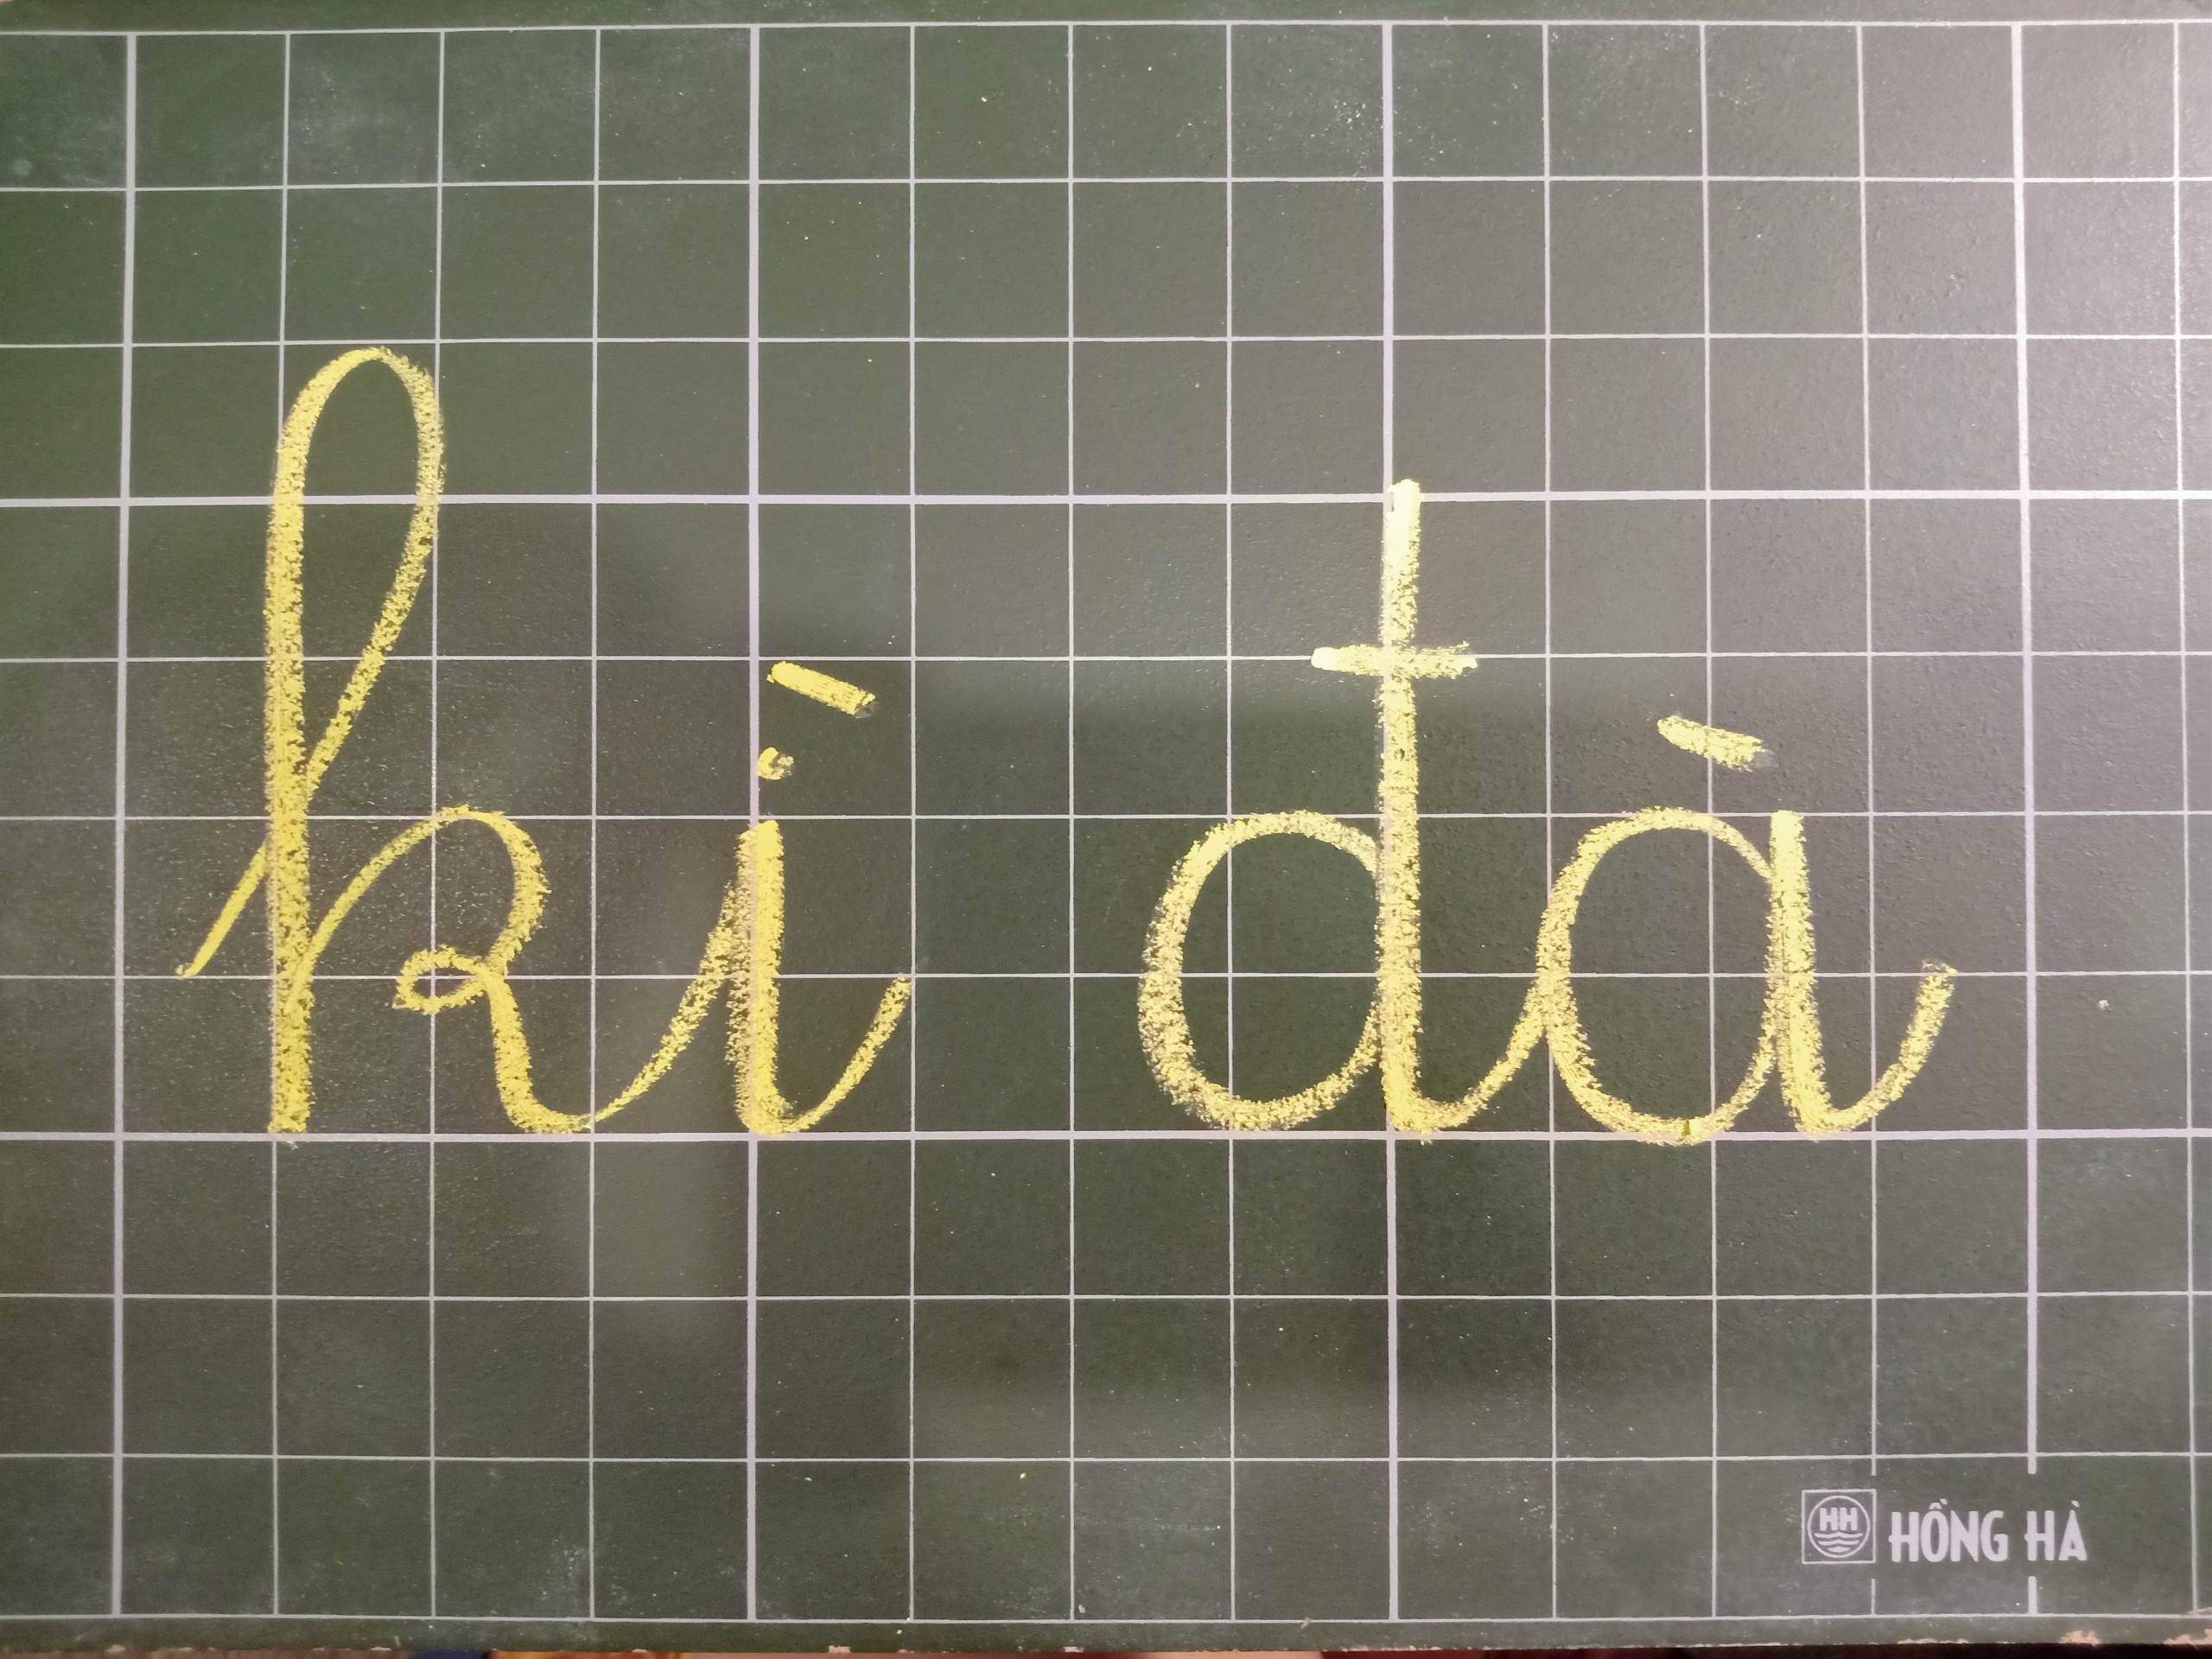 kì đà
HỒNG HÀ